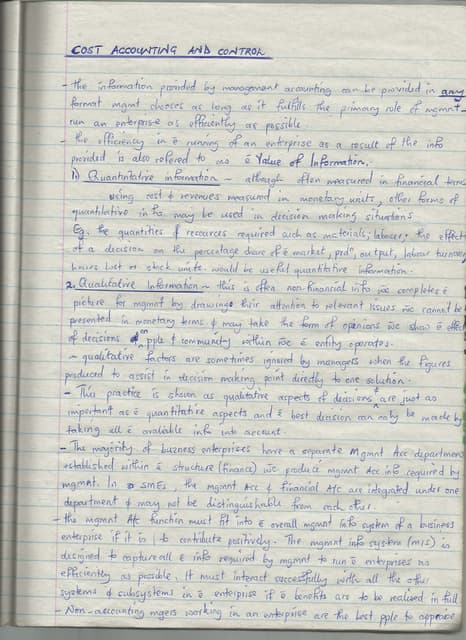 COST ACCOUNTING AND CONTROL
- the information provided by management accounting can be provided in any
format mgmt chooses as long as it fulfills the primary role of mgmnt -
run an enterprise as efficiently as possible
- the efficiency in ē running of an enterprise as a result of the info
provided is also refered to as ē Value of Information.
1) Quantitative information ~ although often measured in financial terms
using cost & revenues measured in monetary units, other forms of
quantitative info may be used in decision making situations
Eg. the quantities of resources required such as materials, labour, the effect
of a decision on the percentage share of ē market, prdn, output, labour turnover,
hours lost or stock units. would be useful quantitative information.
2. Qualitative Information ~ this is often non-financial info wc completes ē
picture for mgmt by drawing their attention to relevant issues wc cannot be
presented in monetary terms & may take the form of openions wc show ē effect
of decisions on pple & community within wc ē entity operates.
~ qualitative factors are sometimes ignored by managers when the figures
produced to assist in decision making point directly to one solution.
- This practice is shown as qualitative aspects of decisions are just as
important as ē quantitative aspects and ē best decision can only be made by
taking all ē avaliable info into account.
- The majority of busness enterprises have a separate Mgmnt Acc department
established within ē structure (finance) wc produce mgmnt Acc info required by
mgmnt. In SMEs, the mgmnt Acc & financial A/c are integrated under one
department & may not be distinguishable from each other.
- the mgmnt A/c function must fit into ē overall mgmnt info system of a business
enterprise if it is to contribute positively. The mgmnt info system (mis) is
designed to capture all ē info required by mgmnt to run ē enterprises as
efficiently as possible. It must interact successfully with all the other
systems & subsystems in ē enterprise if ē benefits are to be realised in full
- Non-accounting mgers working in an enterprise are the best pple to appraise